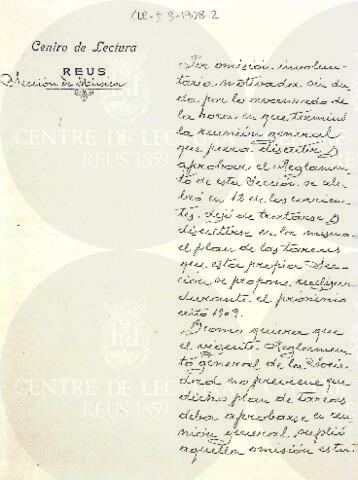 Centro de Lectura
REUS
Sección de Música
Por omisión involun-
taria, motivada sin du-
da por lo avanzado de
la hora en que terminó
la reunión general
que para discutir y
aprobar el Reglamen-
to de esta Sección se cele-
bró en 12 de los corrien-
tes, dejó de tratarse y
discutirse en la misma
el plan de las tareas
que esta propia Sec-
ción se propone realizar
durante el próximo
año 1909.
Y como quiera que
el vigente Reglamen-
to general de la Socie-
dad no previene que
dicho plan de tareas
deba aprobarse en reu-
nión general, suplió
aquella omisión esta
CENTRE DE LECTURA
REUS 1859